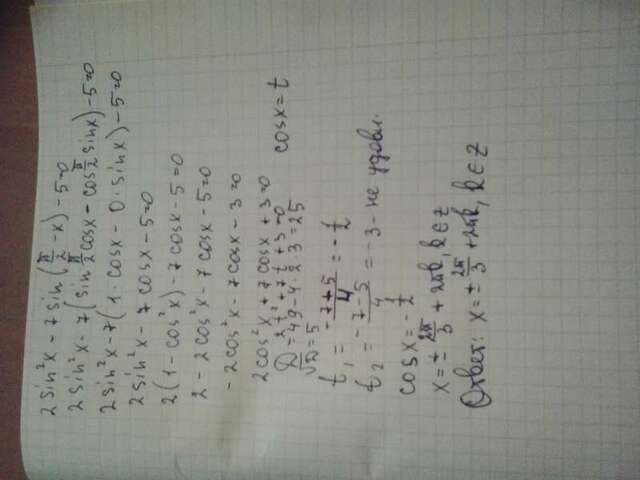 2 sin²x - 7 sin(π/2 - x) - 5 = 0
2 sin²x - 7(sin π/2 cosx - cos π/2 sinx) - 5 = 0
2 sin²x - 7(1·cosx - 0·sinx) - 5 = 0
2 sin²x - 7 cosx - 5 = 0
2(1 - cos²x) - 7 cosx - 5 = 0
2 - 2cos²x - 7 cosx - 5 = 0
-2cos²x - 7cosx - 3 = 0
2cos²x + 7cosx + 3 = 0 cosx = t
2t² + 7t + 3 = 0
D = 49 - 4·2·3 = 25
√D = 5
t₁ = (-7+5)/4 = -1/2
t₂ = (-7-5)/4 = -3 - не удовл.
cosx = -1/2
x = ± 2π/3 + 2πk, k∈Z
Ответ: x = ± 2π/3 + 2πk, k∈Z